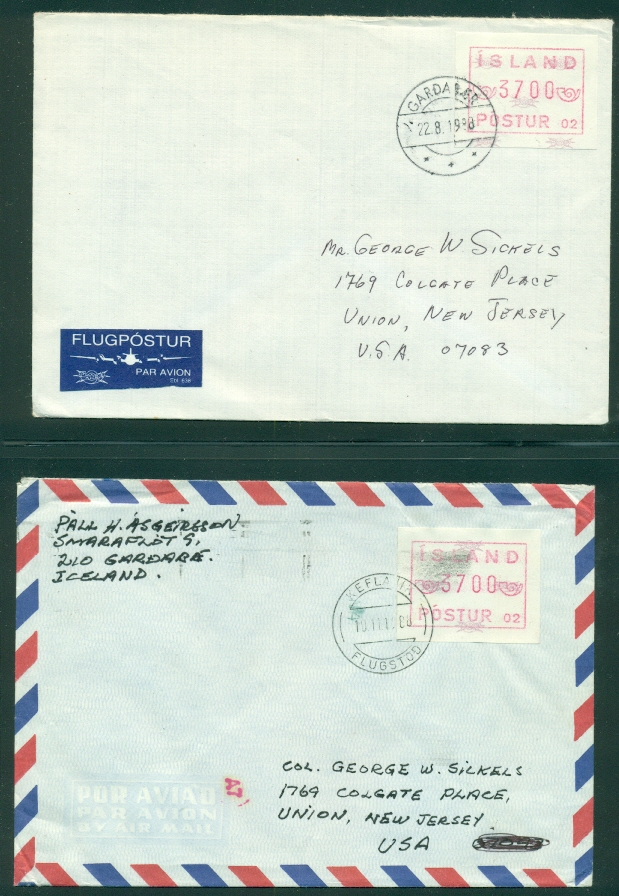 ÍSLAND
3700
PÓSTUR 02
GARDABÆR
22.8.1988
MR. GEORGE W SICKELS
1769 COLGATE PLACE
UNION, NEW JERSEY
U.S.A. 07083
FLUGPÓSTUR
PAR AVION
PÁLL H. ÁSGEIRSSON.
SMARAFLÖT 9,
210 GARDABÆ.
ICELAND.
ÍSLAND
3700
PÓSTUR 02
KEFLAVÍK
FLUGSTÖÐ
COL. GEORGE W. SICKELS
1769 COLGATE PLACE,
UNION, NEW JERSEY
USA
POR AVIAO
PAR AVION
BY AIR MAIL